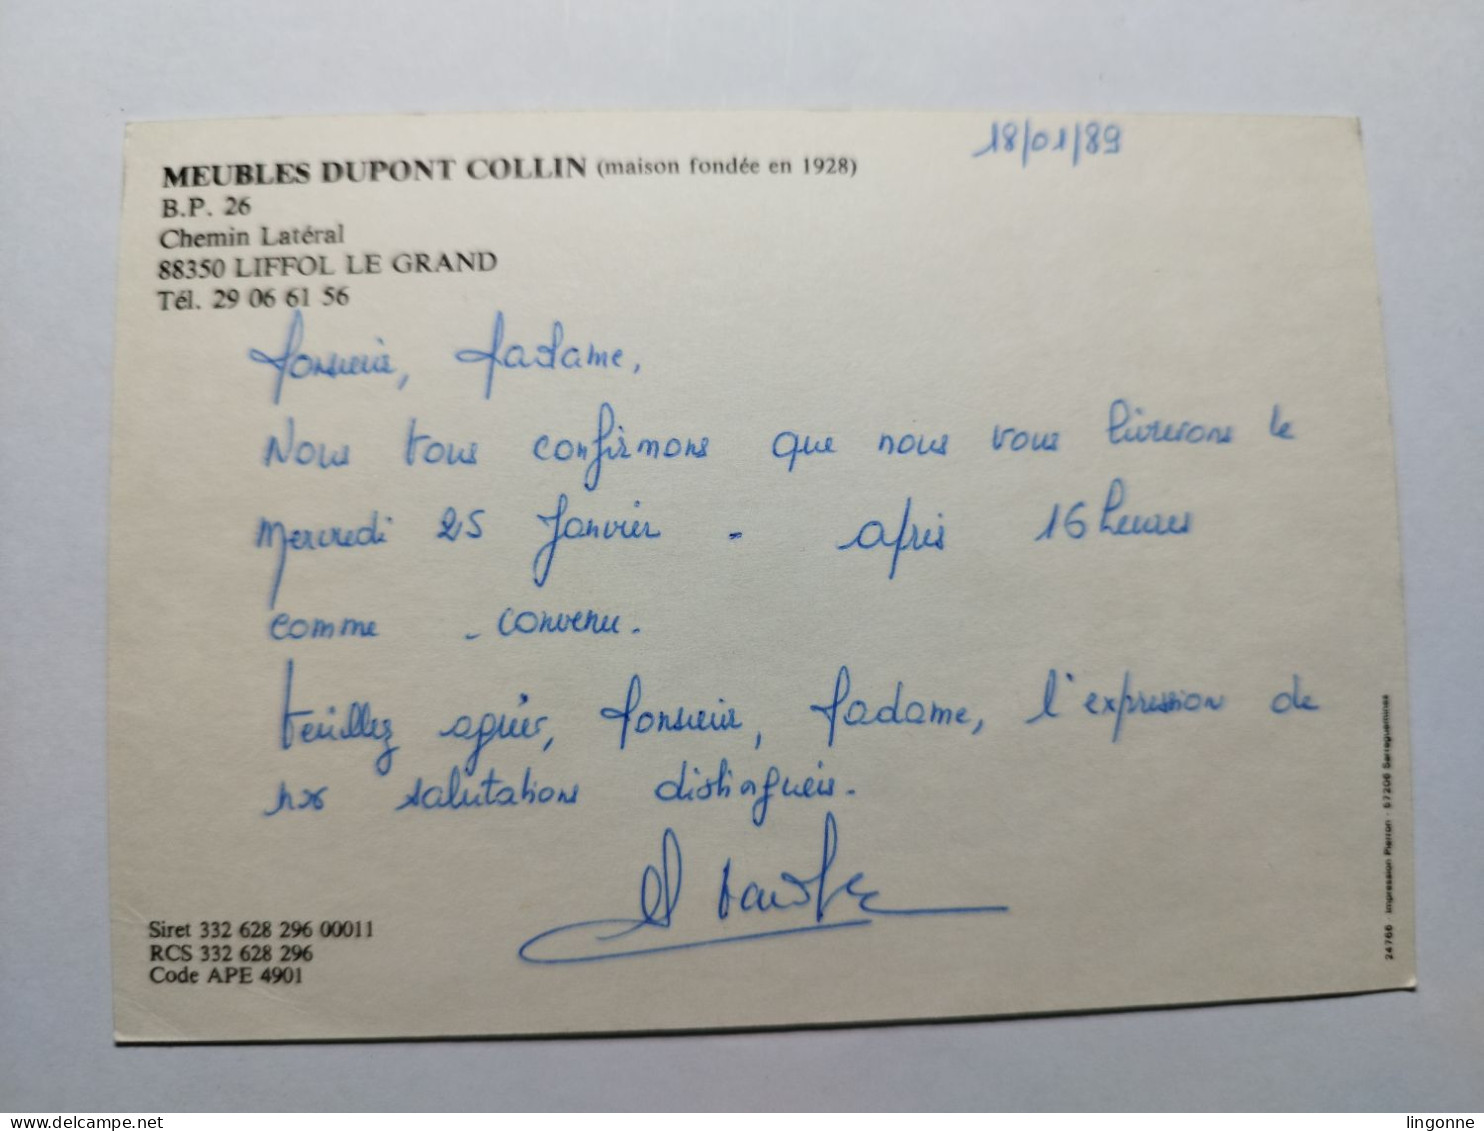 18/01/89
MEUBLES DUPONT COLLIN (maison fondée en 1928)
B.P. 26
Chemin Latéral
88350 LIFFOL LE GRAND
Tél. 29 06 61 56
Monsieur, Madame,
Nous vous confirmons que nous vous livrerons le
Mercredi 25 Janvier - après 16 heures
comme - convenu.
Veuillez agréer, Monsieur, Madame, l'expression de
nos salutations distinguées.
Siret 332 628 296 00011
RCS 332 628 296
Code APE 4901
24766 - Impression Pierron - 57206 Sarreguemines
lingonne
www.delcampe.net